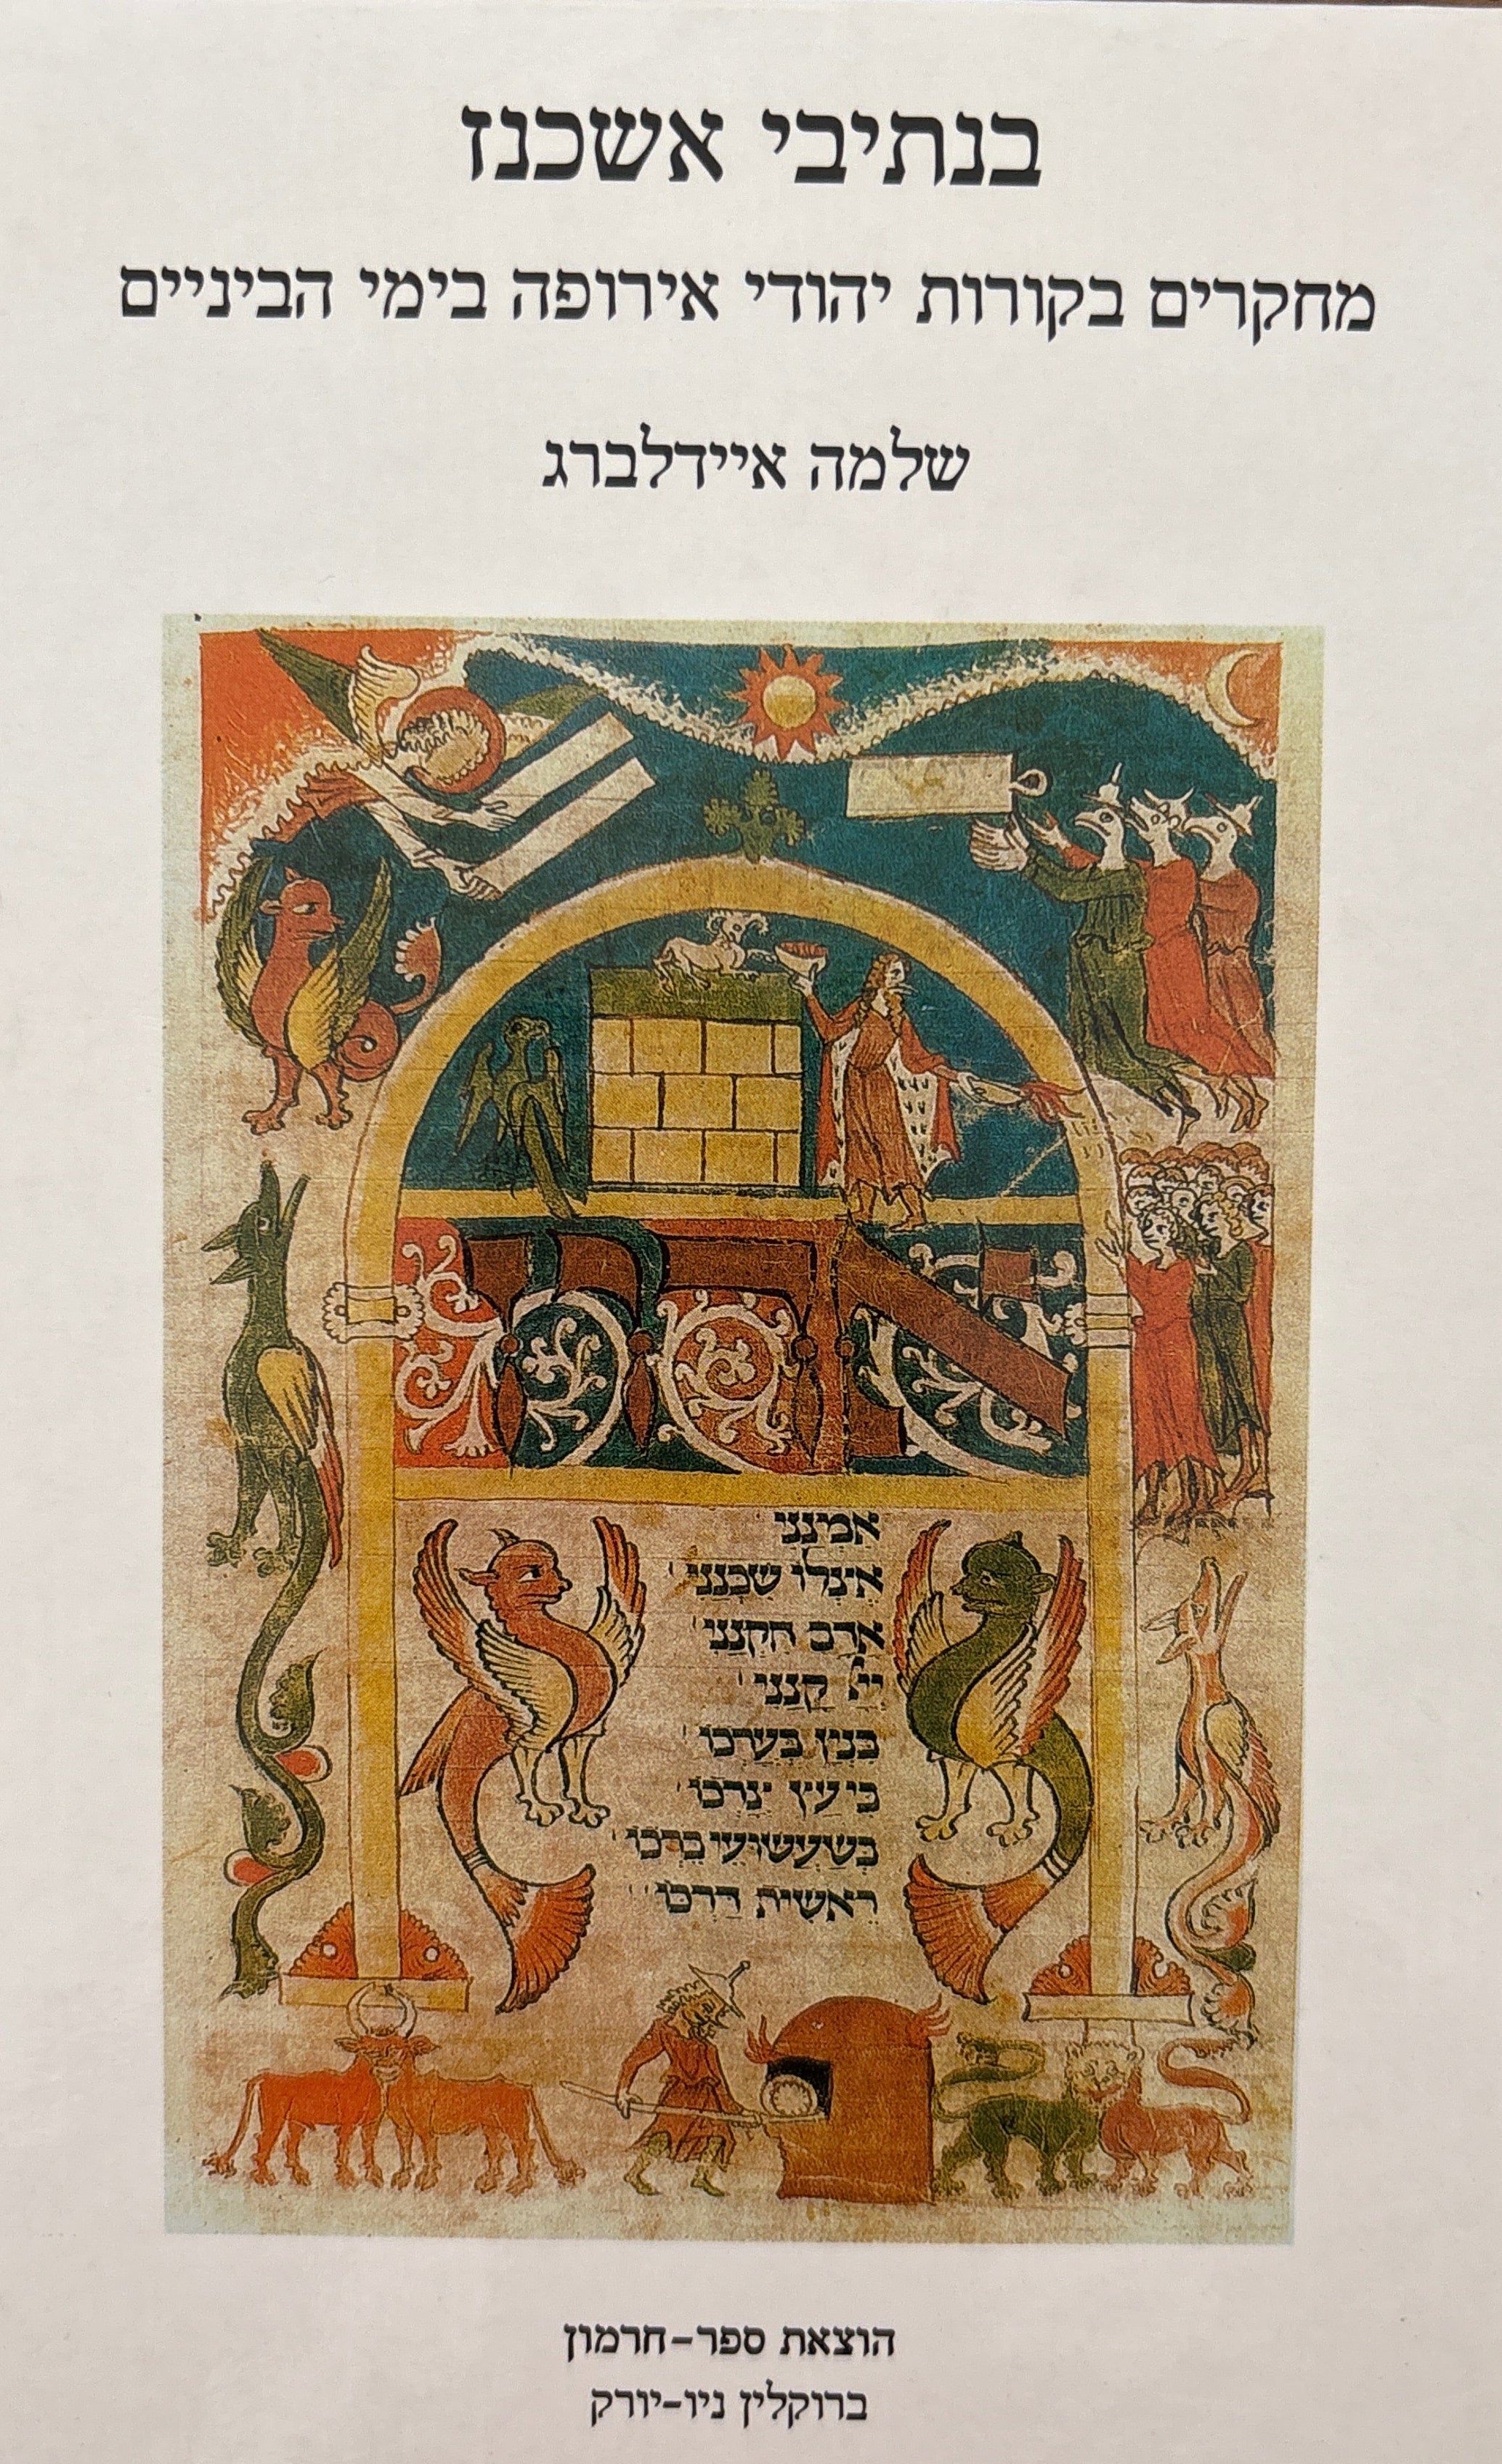 בנתיבי אשכנז
מחקרים בקורות יהודי אירופה בימי הביניים
שלמה איידלברג
אדון
אמנני
אצלו שכנני
יי' קנני
בנין בערכו
בשעשועי ברכו
ראשית דרכו
הוצאת ספר-חרמון
ברוקלין ניו-יורק